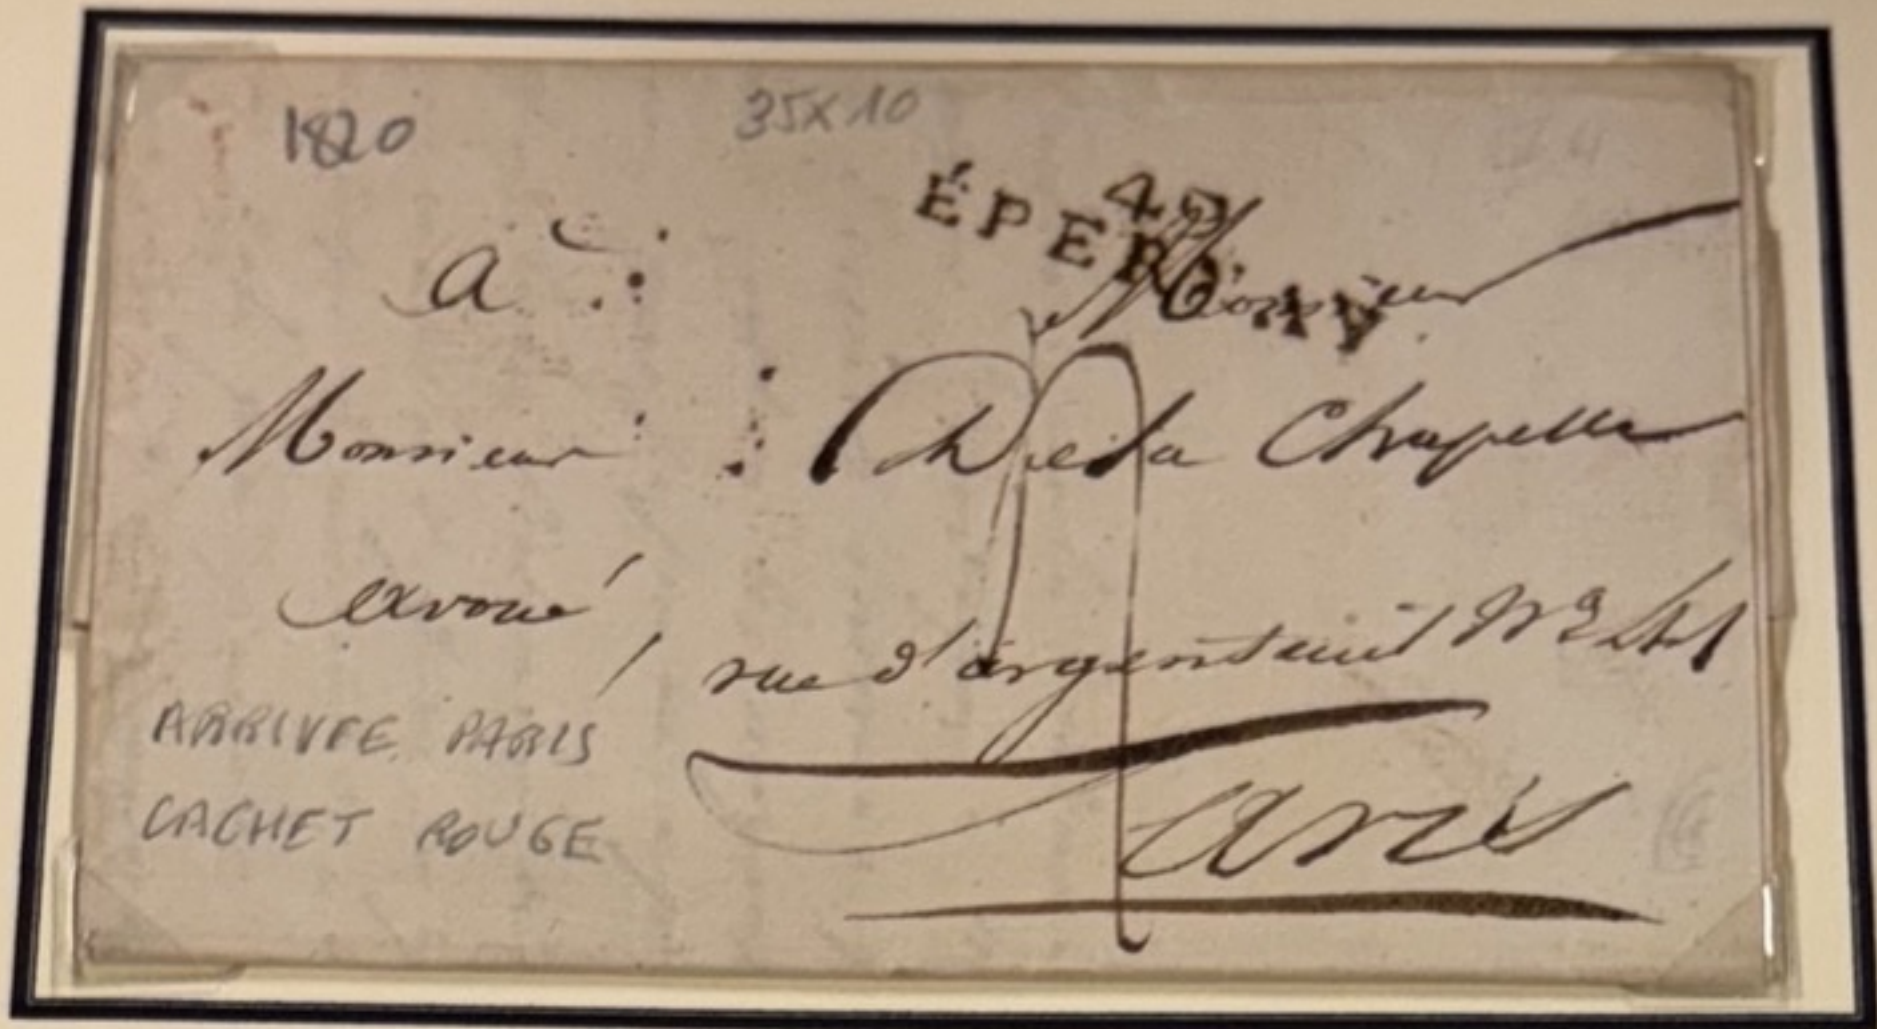 1820
35X10
49
ÉPERNAY
a Monsieur
Monsieur De la Chapelle
avoué,
rue d'argenteuil N°
ARRIVEE PARIS
Paris
CACHET ROUGE